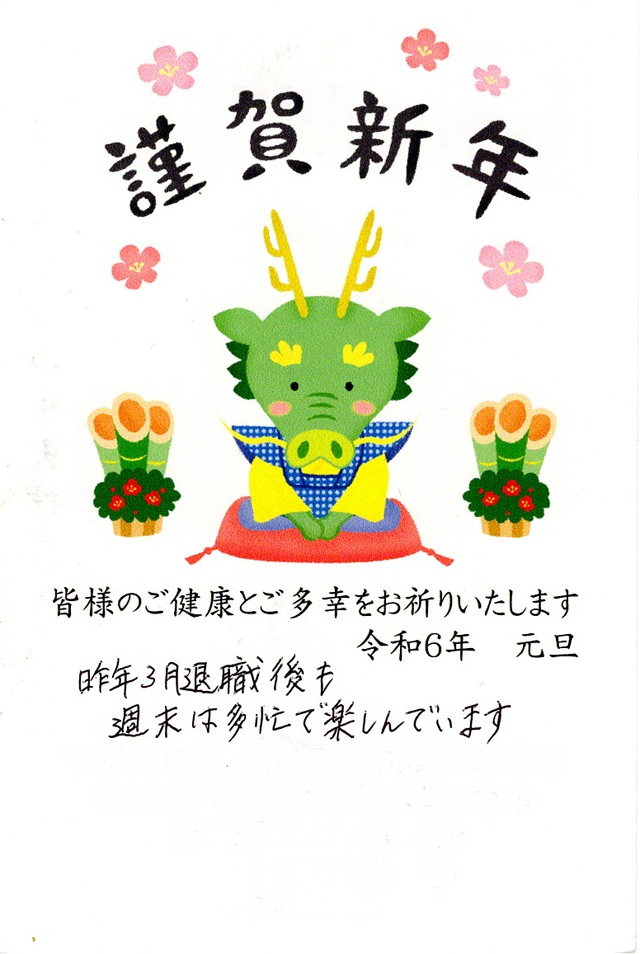 謹賀新年
皆様のご健康とご多幸をお祈りいたします
令和6年　元旦
昨年3月退職後も
週末は多忙で楽しんでいます